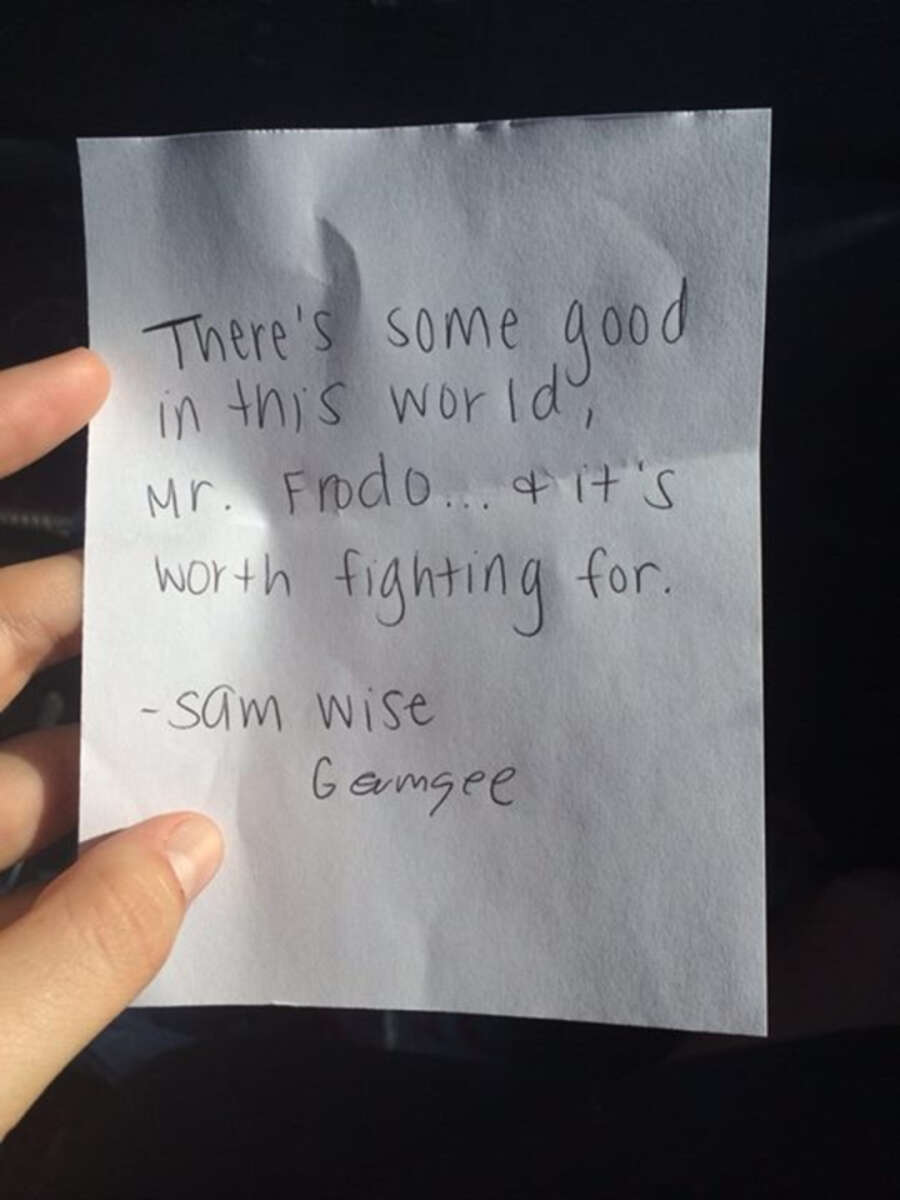 There's some good
in this world,
Mr. Frodo... & it's
worth fighting for.
-Sam Wise
Gamgee